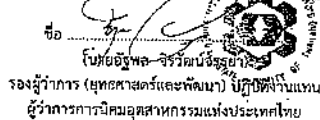 ชื่อ
(นายอัฐพล จิรวัฒน์จรรยา)
รองผู้ว่าการ (ยุทธศาสตร์และพัฒนา) ปฏิบัติงานแทน
ผู้ว่าการการนิคมอุตสาหกรรมแห่งประเทศไทย